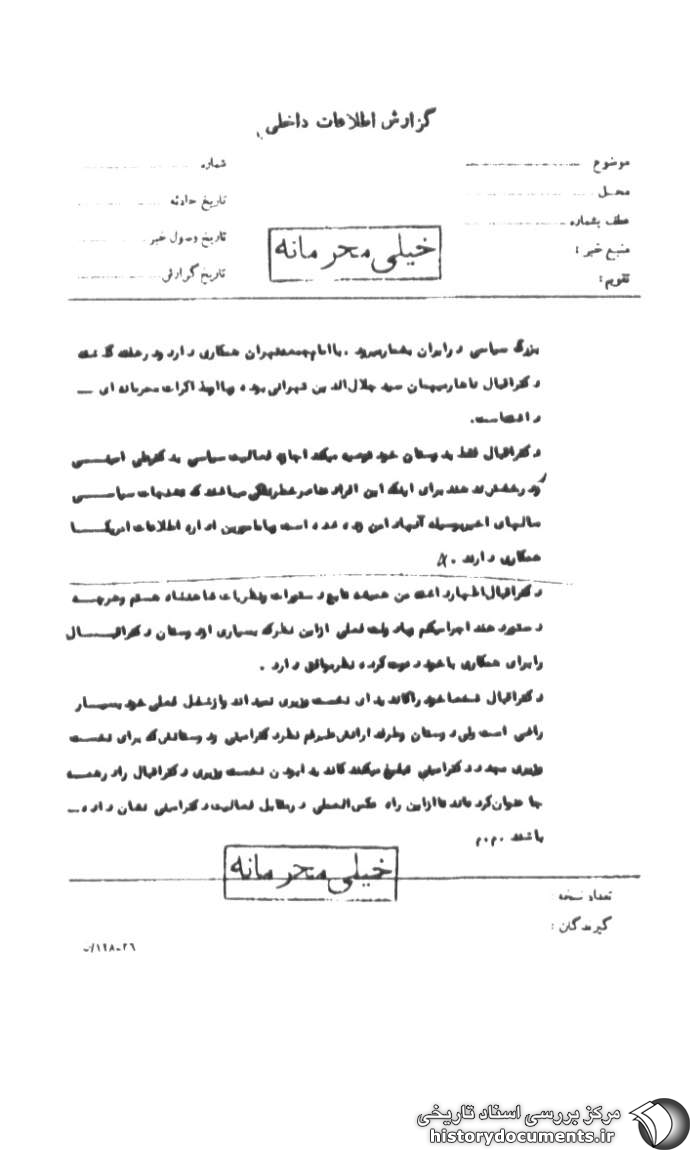 گزارش اطلاعات داخلی
موضوع
شماره
محل
تاریخ حادثه
عطف بشماره
تاریخ وصول خبر
منبع خبر :
تاریخ گزارش
تقویم :
خیلی محرمانه
بزرگ سیاسی در ایران بشمار میرود . با امام جمعه تهران همکاری دارد در هفته گذشته
دکتر اقبال ناهار میهمان سید جلال الدین تهرانی بوده و با او مذاکرات محرمانه ای ــ
داشته است.
دکتر اقبال فقط به دوستان خود توصیه میکند اجازه فعالیت سیاسی به دکتر علی امینی
و درخشش ندهند برای اینکه این افراد عناصر خطرناکی میباشند که تشنجات سیاسی
سالهای اخیر بوسیله آنها دامن زده شده است و با مامورین اداره اطلاعات امریکا
همکاری دارند .
دکتر اقبال اظهار داشت من همیشه تابع دستورات و نظریات شاهنشاه هستم و هر چه
دستور دهند اجرا میکنم و با دولت فعلی از این نظر که بسیاری از دوستان دکتر اقبال
را برای همکاری با خود دعوت کرده نظر موافق دارد .
دکتر اقبال شخصا خود را کاندیدای نخست وزیری نمیداند و از شغل فعلی خود بسیار
راضی است ولی دوستان و طرفدارانش علیرغم نظر دکتر امینی و دوستانش که برای نخست
وزیری مجدد دکتر امینی تبلیغ میکنند کاندیدا بودن نخست وزیری دکتر اقبال را در همه
جا عنوان کرده اند تا از این راه عکس العملی در مقابل فعالیت دکتر امینی نشان داده ــ
باشند . م.م
خیلی محرمانه
تعداد نسخه :
گیرندگان :
۲۶-۱۲۸/
مرکز بررسی اسناد تاریخی
historydocuments.ir